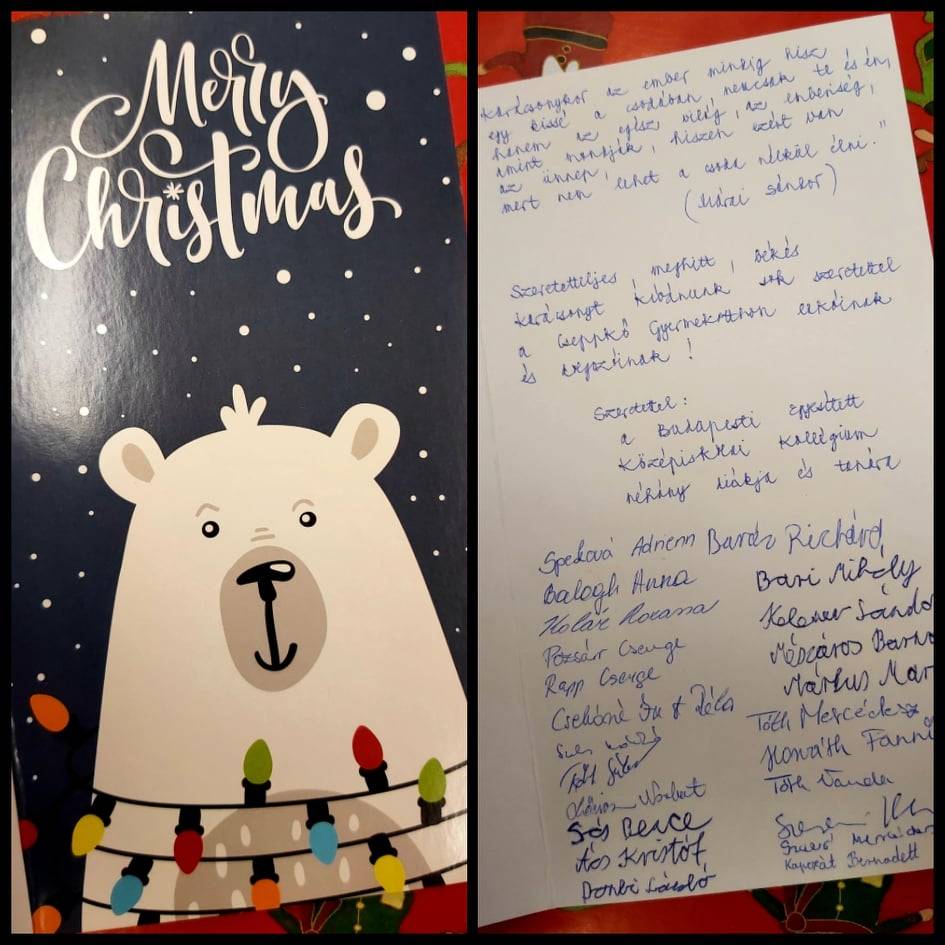 Merry
Christmas
Karácsonykor az ember mindig hisz
egy kissé a csodában, nemcsak te és én,
hanem az egész világ, az emberiség,
amint mondják, hiszen ezért van
az ünnep, mert nem lehet a csoda nélkül élni."
(Márai Sándor)
Szeretetteljes, meghitt, békés
karácsonyt kívánunk sok szeretettel
a Cseppkő Gyermekotthon lakóinak
és dolgozóinak!
Szeretettel:
a Budapesti Egyesített
Középiskolai Kollégium
néhány diákja és tanára
Speková Adrienn
Balogh Anna
Kolár Roxana
Pozsár Csenge
Rapp Csenge
Csehóné
Norbert
Bence
Ács Kristóf
Dombi László
Baráz Richárd
Bari Mihály
Kelemer Sándo
Mészáros Barna
Márkus Mar
Tóth Mercédesz
Horváth Fanni
Tóth Vanda
Kapozát Bernadett